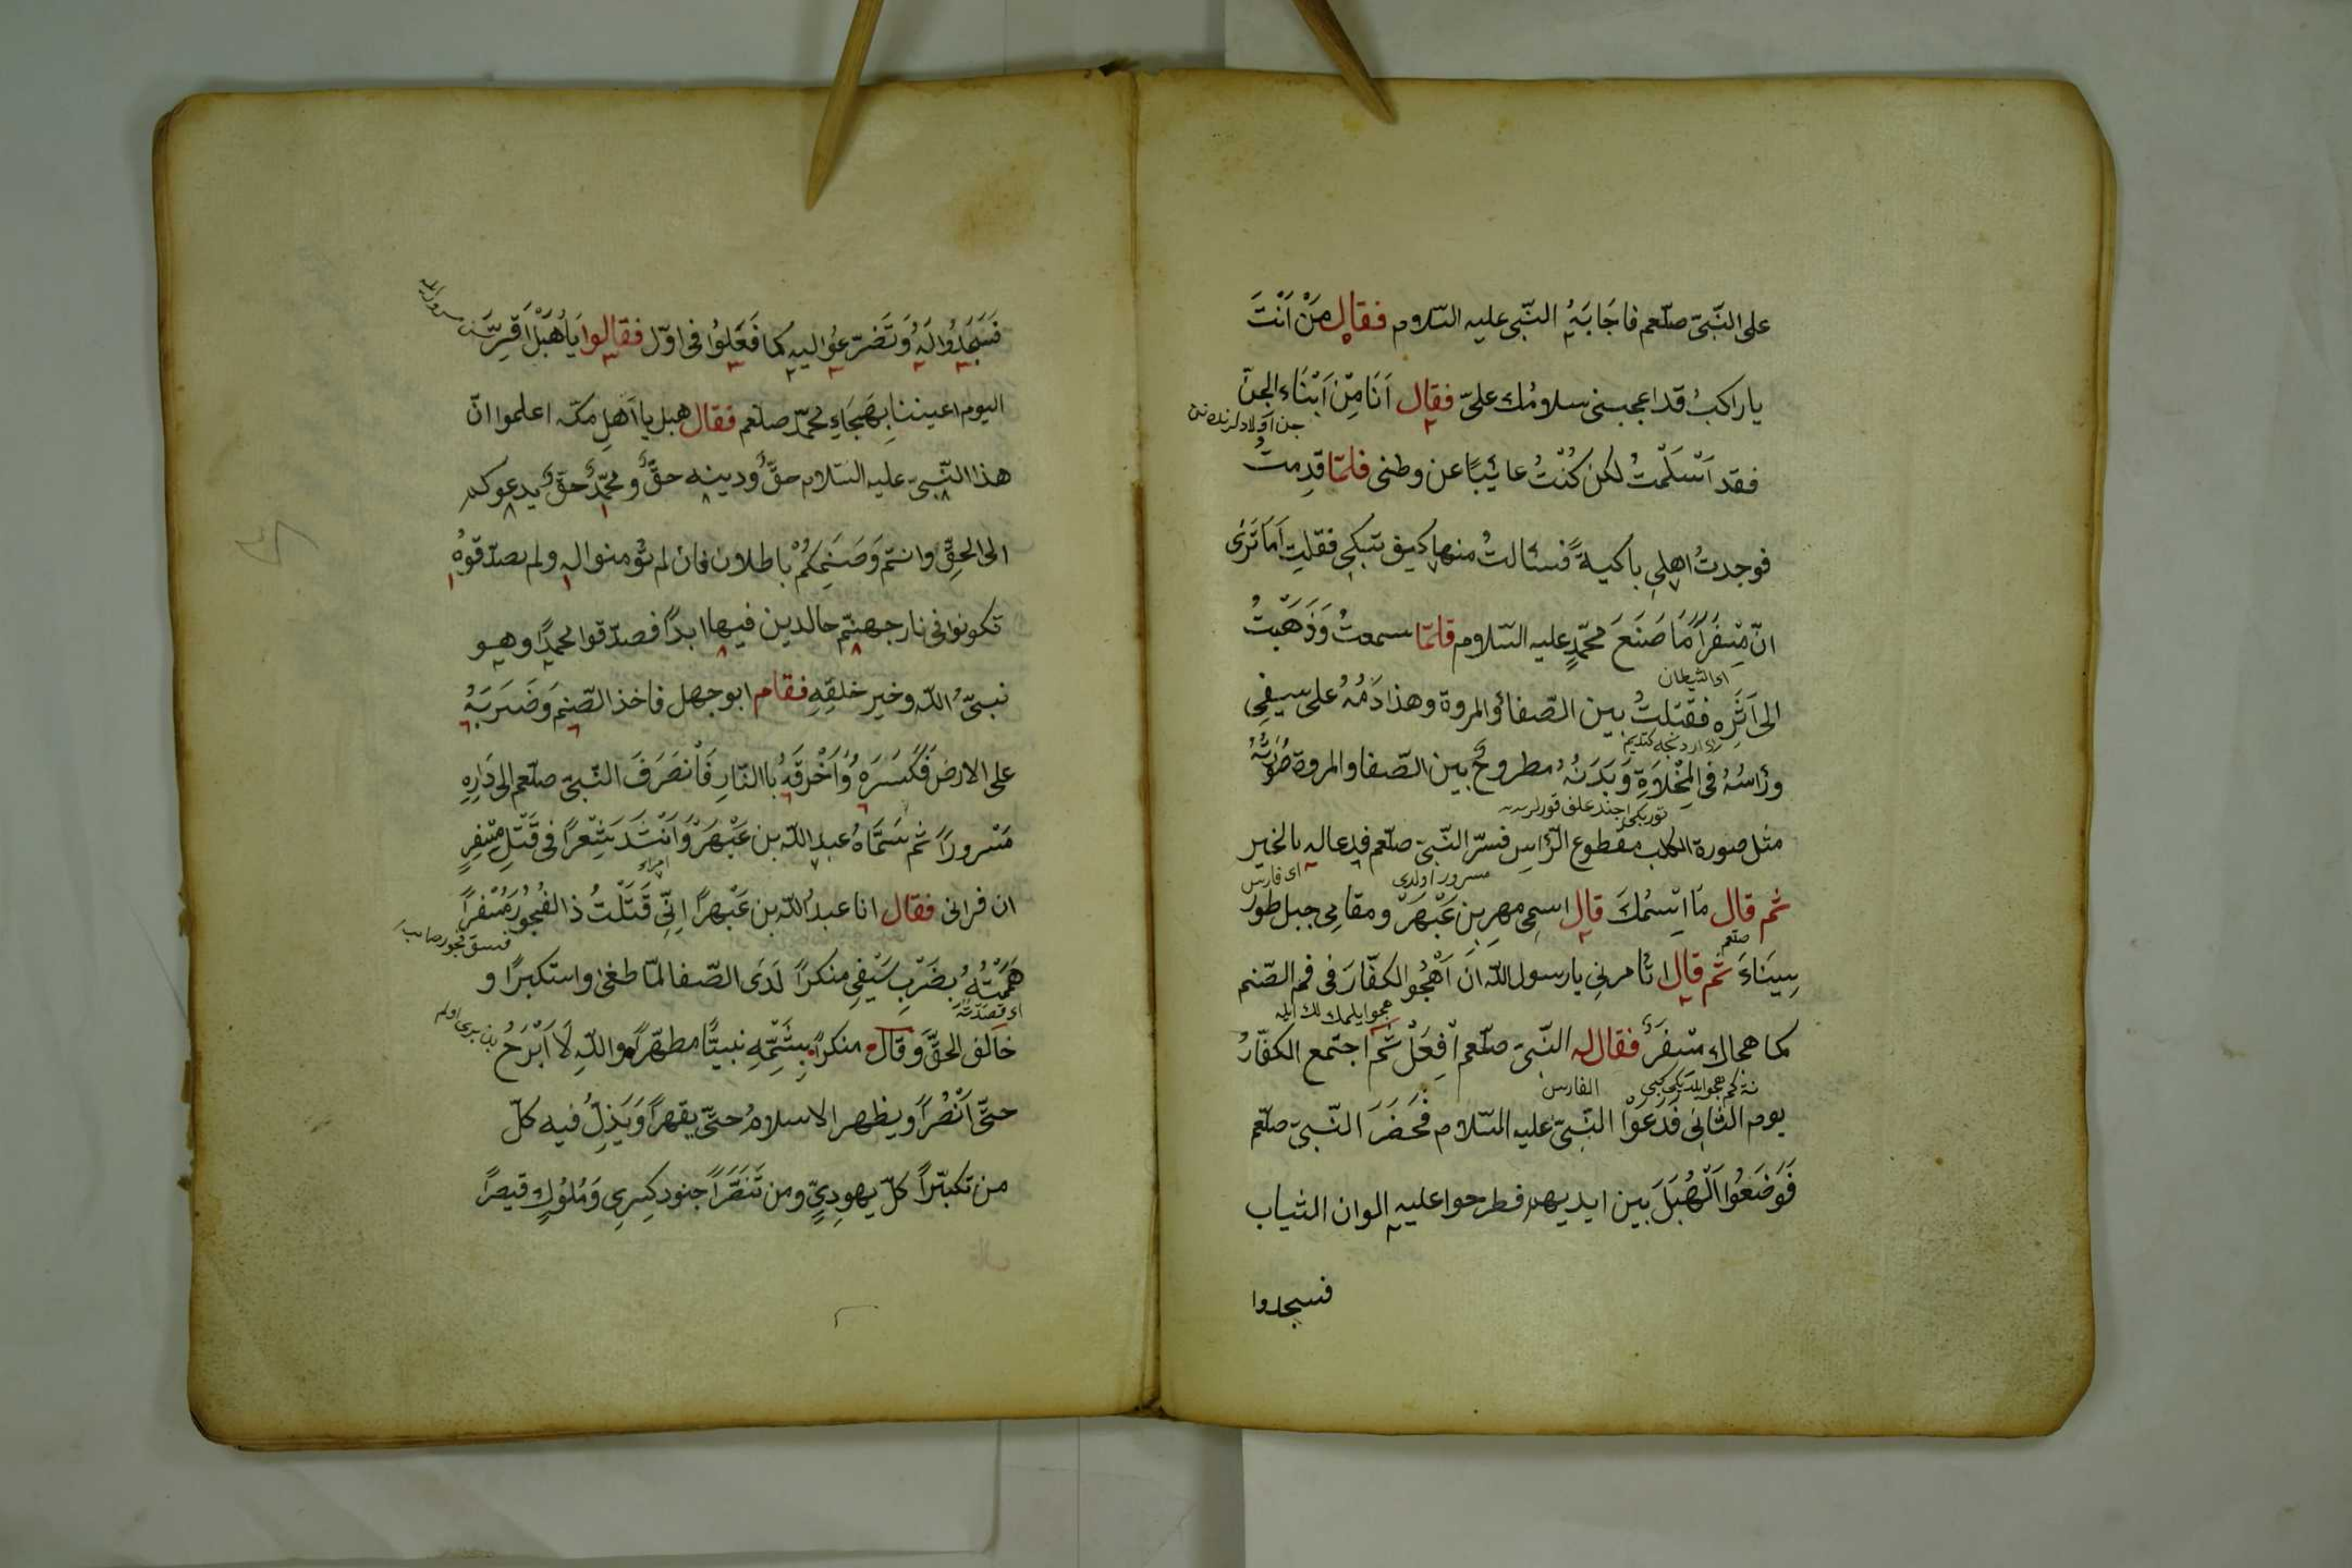 على النّبىّ صلّعم فاجَابَهُ النّبى عليه السّلاوم فقال مَنْ اَنْتَ
ياراكبُ قد اعجبنى سلاومُك علىّ فقال اَنَا مِّن اَبْنَاء الجنّ
فقد اَسْلَمْتُ لكن كُنْتُ عائِبًا عن وطنى فلمّا قدِمتُ
فوجدتُ اهلى باكيةً فسئالتُ منها كيف تبكى فقلتِ اَمَا تَرَى
انّ مِسْفَرًا مَا صَنَعَ محمّدٍ عليه السّلاوم فلمّا سمعتُ وَذَهَبْتُ
اى الشيطان
الى اَثَرِه فقتلتُ بين الصّفا والمروة وهذا دَمُهُ على سيفِى
ورَاسُهُ فى المِخْلَاوَةِ وَبَدَنُهُ مطروحٌ بين الصّفا والمروة صُورَتُهُ
مثل صورة الكلب مقطوع الرّاس فسرّ النّبىّ صلّعم فدعا له بالخير
مسرور اولدى
اى فارس
ثم قال مَا اسْمُكَ قال اسمِى مهرِ بن عَبْهَرْ ومقامِى جبل طور
صلعم
سِينَاءَ ثم قال اتٔامرنِى يا رسول اللّه ان اَهْجُوا الكفّارَ فى فم الصّنم
كما هجاك مسْفَرٌ فقال له النّبىّ صلّعم اْفعَلْ ثم اجتمع الكفّارُ
الفارس
يوم الثانِى فَدَعَوْا النّبىّ عليه السّلاوم فَحَضَرَ النّبىّ صلّعم
فَوَضَعُوا الْهُبَلَ بين ايديهم فطرحوا عليه الوان الثياب
فسجدوا
فَسَجَدُوا لَهُ وَتَضَرّعُوا اليه كما فَعَلُوا فى اوّل فقالوا يَا هُبَلْ اَقرِّ
اليوم اعيننا بِهَجَاءِ محمّد صلعم فقال هبل يا اَهلِ مكّه اعلموا انّ
هذا النّبىّ عليه السّلام حقٌّ ودينه حقٌّ ومحمّدٌ حقٌّ يدعوكم
الى الحقِّ وانتم وَصَنَمِكُمْ باطلاون فان لم تُؤمنوا له ولم يصدّقوهُ
تكونوا فى نار جهنّم خالدين فيها ابدًا فصدّقوا محمّدًا وهو
نبىُّ اللّه وخير خلقِهِ فقام ابو جهل فاخذ الصّنم وَضَرَبَهُ
على الارض فَكَسَرَهُ وَاَحْرَقَهُ باالنّارِ فَانْصَرَفَ النّبىّ صلّعم الى دَارِهِ
مَسْرورًا ثم سَمَّاهُ عبد اللّه بن عَبْهَرْ وَاَنْشَدَ شِعْرًا فى قَتْلِ مِسْفِرٍ
ان فرانى فقال انا عبدُ اللّه بن عَبْهَرًا اِنّى قَتَلْتُ ذا الفُجُورِ مُسْفرًا
هَمَمْتُهُ بضَرْبِ سَيْفِى منكرًا لَدَى الصّفا لمّا طغى واستكبرًا و
اى قصدته
خالف الحقَّ وَقال منكرًا بِشَتْمِهِ نبيًّا مطهّرًا واللّهِ لَا اَبْرَحُ
حتّى اَنْصُرًا ويظهر الاسلامُ حتّى يقهرًا وَيَذِلّ فيه كلّ
من تكبّرًا كلّ يهودِىٍّ ومن تَنَصَّرًا جنود كِسرِى وَمُلُوكِ قيصرًا